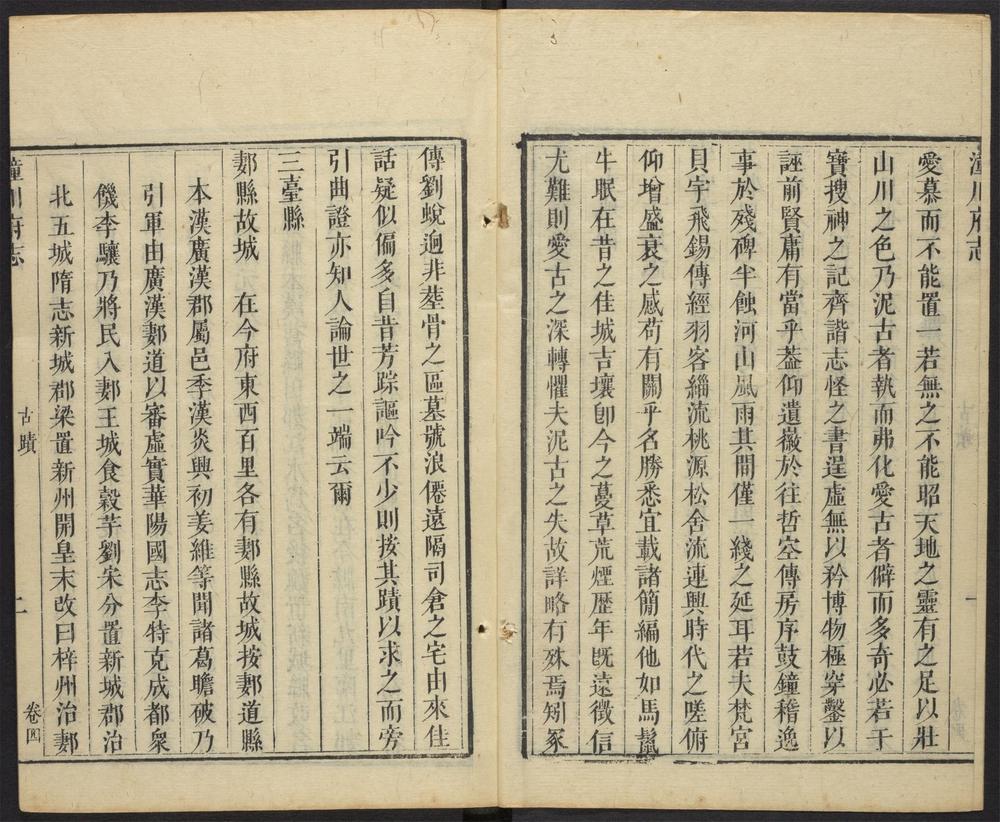 潼川府志
愛慕而不能置一若無之不能昭天地之靈有之足以壯
山川之色乃泥古者執而弗化愛古者僻而多奇必若干
寶搜神之記齊諧志怪之書逞虛無以矜博物極穿鑿以
誣前賢庸有當乎葢仰遺徽於往哲空傳房序鼓鐘稽逸
事於殘碑半蝕河山風雨其間僅一綫之延耳若夫梵宮
貝宇飛錫傳經羽客緇流桃源松舍流連興時代之嗟俯
仰增盛衰之感苟有關乎名勝悉宜載諸簡編他如馬鬛
牛眠在昔之佳城吉壤卽今之蔓草荒煙歷年旣遠徵信
尤難則愛古之深轉懼夫泥古之失故詳略有殊焉矧冢
傳劉蛻逈非塟骨之區墓號浪僊遠隔司倉之宅由來佳
話疑似偏多自昔芳踪謳吟不少則按其蹟以求之而旁
引曲證亦知人論世之一端云爾
三臺縣
郪縣故城 在今府東西百里各有郪縣故城按郪道縣
本漢廣漢郡屬邑季漢炎興初姜維等聞諸葛瞻破乃
引軍由廣漢郪道以審虛實華陽國志李特克成都衆
饑李驤乃將民入郪王城食穀芋劉宋分置新城郡治
北五城隋志新城郡梁置新州開皇末改曰梓州治郪
潼川府志
古蹟
二
卷四